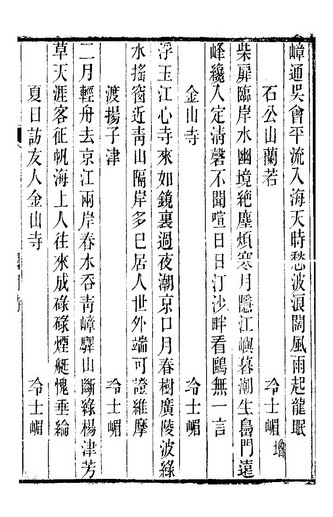 嶂通吳會平流入海天時愁波浪闊風雨起龍眠
石公山蘭若 冷士嵋
柴扉臨岸水幽境絶塵煩寒月隱江嶼暮潮生島門遠
峰纔入定淸磬不聞喧日日汀沙畔看鷗無一言
金山寺 冷士嵋
浮玉江心寺來如鏡裏過夜潮京口月春樹廣陵波綠
水搖窗近靑山隔岸多已居人世外端可證維摩
渡揚子津 冷士嵋
二月輕舟去京江兩岸春水吞靑嶂驛山斷綠楊津芳
草天涯客征帆海上人往來成碌碌煙艇愧垂綸
夏日訪友人金山寺 冷士嵋